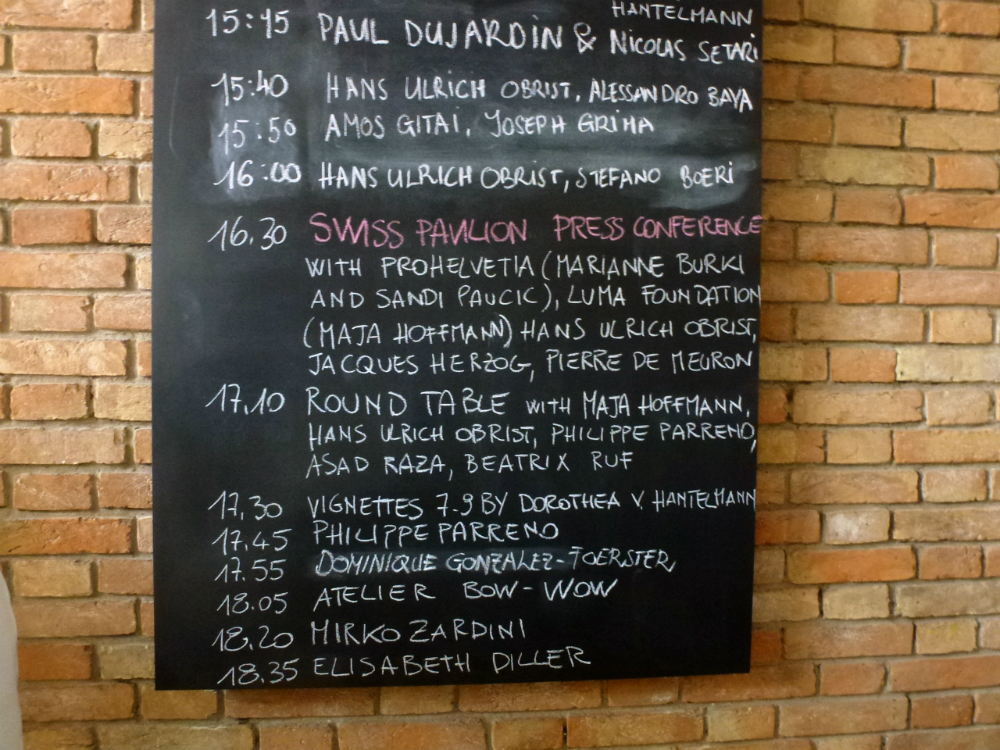 HANTELMANN
15:15 PAUL DUJARDIN & NICOLAS SETARI
15:40 HANS ULRICH OBRIST, ALESSANDRO BAVA
15:50 AMOS GITAI, JOSEPH GRIMA
16:00 HANS ULRICH OBRIST, STEFANO BOERI
16.30 SWISS PAVILION PRESS CONFERENCE
WITH PROHELVETIA (MARIANNE BURKI
AND SANDI PAUCIC), LUMA FOUNDATION
(MAJA HOFFMANN) HANS ULRICH OBRIST,
JACQUES HERZOG, PIERRE DE MEURON
17.10 ROUND TABLE WITH MAJA HOFFMANN,
HANS ULRICH OBRIST, PHILIPPE PARRENO,
ASAD RAZA, BEATRIX RUF
17.30 VIGNETTES 7-9 BY DOROTHEA V. HANTELMANN
17.45 PHILIPPE PARRENO
17.55 DOMINIQUE GONZALEZ-FOERSTER,
18.05 ATELIER BOW-WOW
18.20 MIRKO ZARDINI
18.35 ELISABETH DILLER